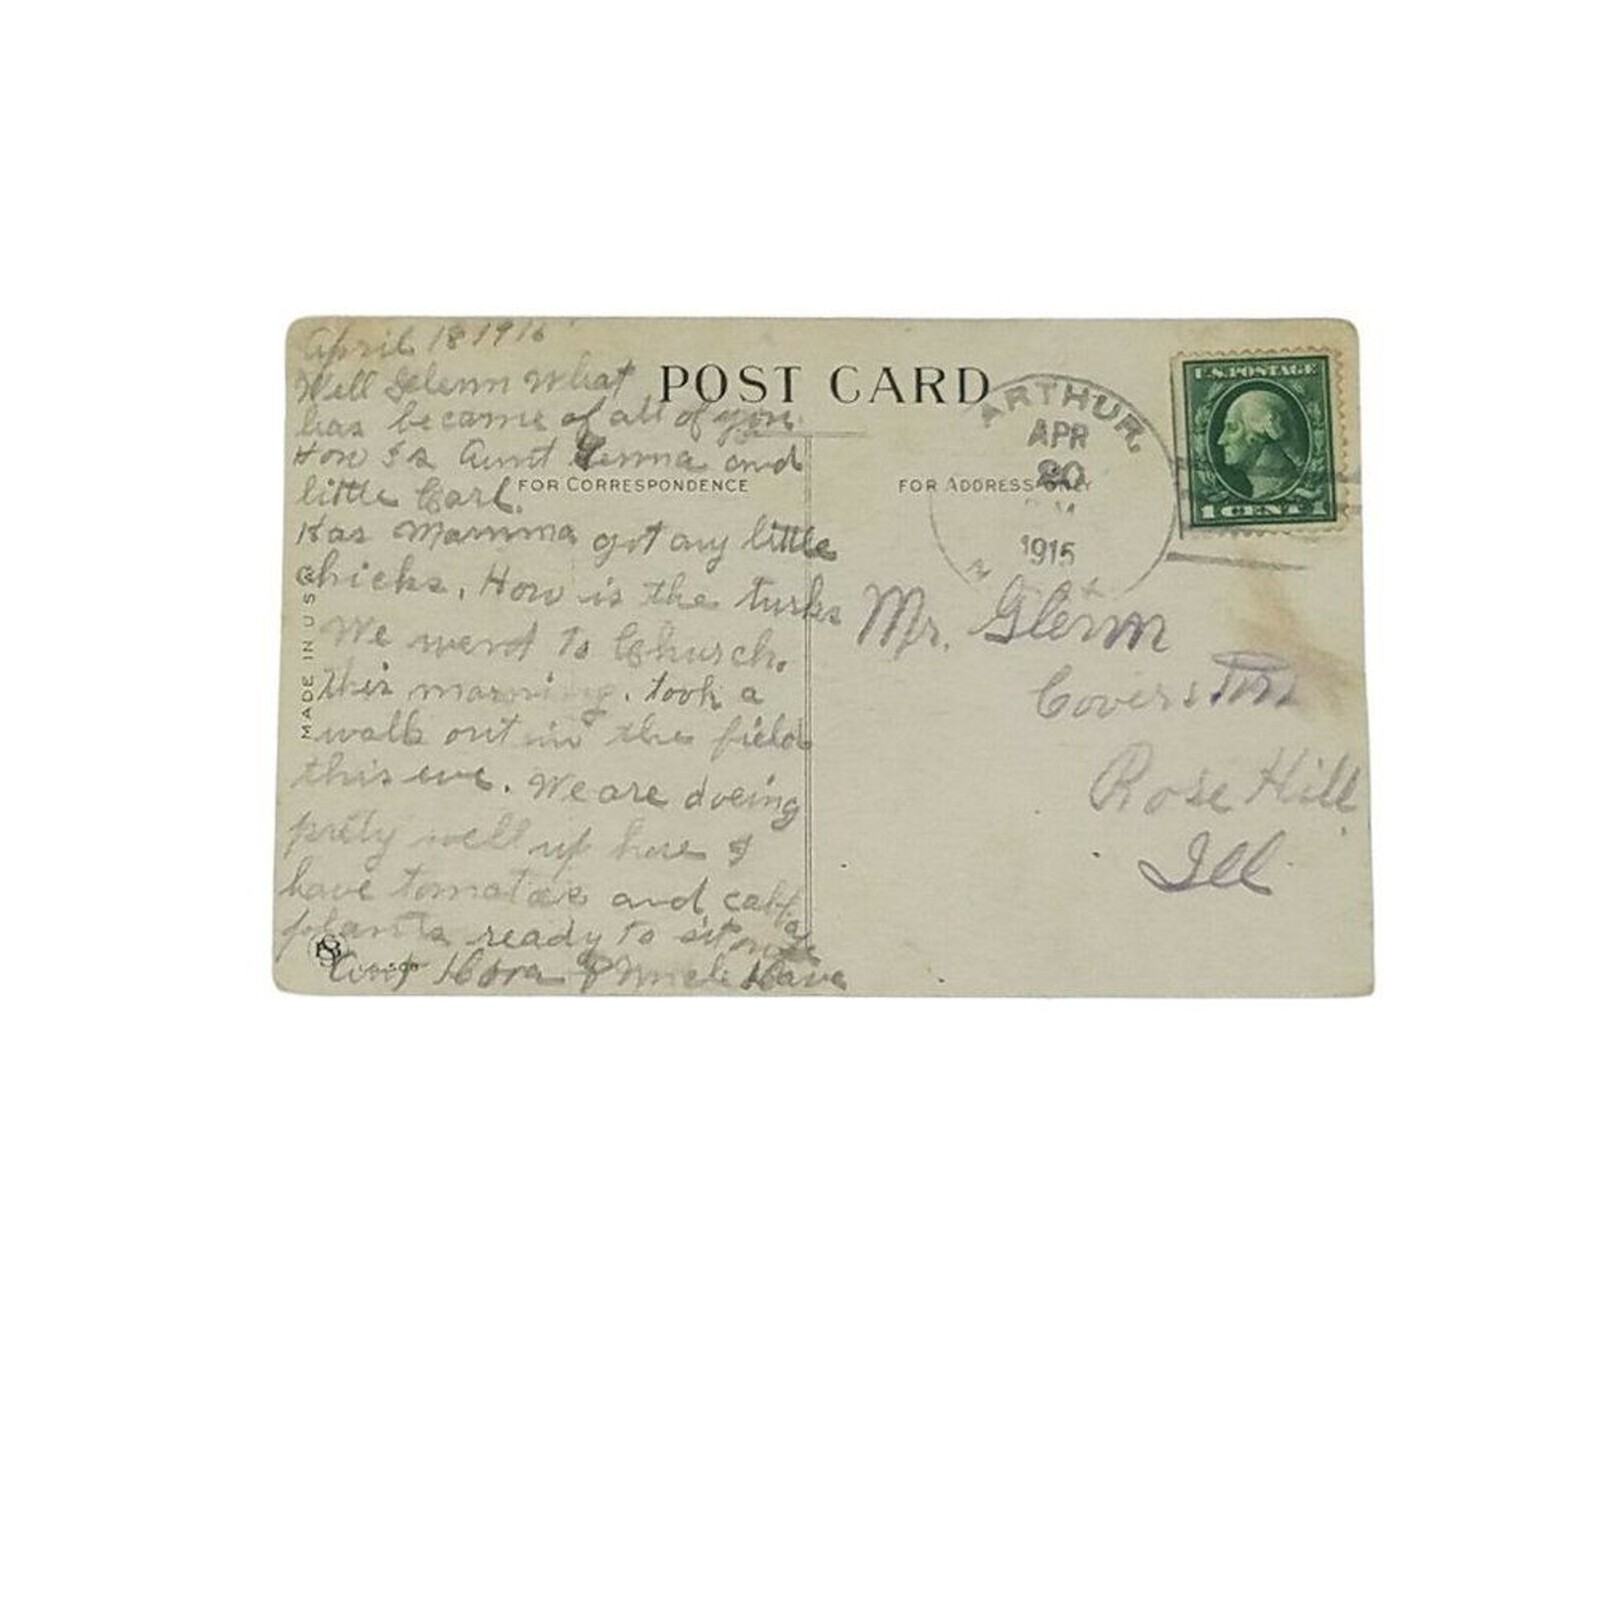 April 18 191
Well Glenn What
has became of all of you.
How Is Aunt and
little Carl.
Has Mamma got any little
chicks. How is the turks
We went to Church.
this morning. took a
walk out in the field
this eve. We are doeing
prety well up here I
have tomatoes and cabbage
plants ready to sit out
Aunt & Uncle
POST CARD
FOR CORRESPONDENCE
FOR ADDRESS ONLY
MADE IN U S A
ARTHUR,
APR
20
M
1915
U.S. POSTAGE
1 CENT 1
Mr. Glenn
Coverston
Rose Hill
Ill